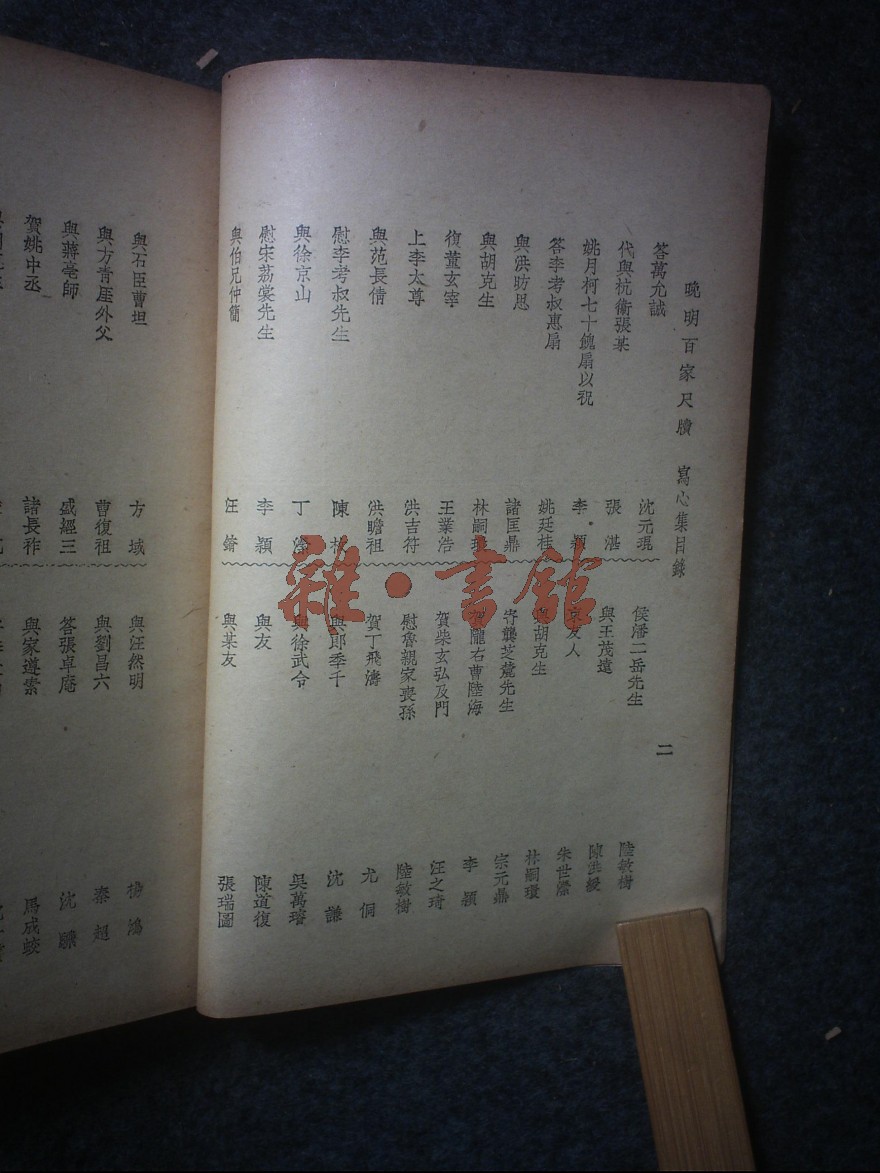 晚明百家尺牘 寫心集目錄
二
答萬允誠 沈元琨
代與杭衞張某 張湛
姚月柯七十餽扇以祝 李穎
答李考叔惠扇 姚廷桂
與洪昉思 諸匡鼎
與胡克生 林嗣
復董玄宰 王業浩
上李太尊 洪吉符
與范長倩 洪瞻祖
慰李考叔先生 陳
與徐京山 丁
慰宋荔裳先生 李穎
與伯兄仲簡 汪鏥
侯潘二岳先生 陸敏樹
與王茂遠 陳洪綬
友人 朱世濚
胡克生 林嗣環
寄龔芝麓先生 宗元鼎
隴右曹陸海 李穎
賀柴玄弘及門 汪之琦
慰魯親家喪孫 陸敏樹
賀丁飛濤 尤侗
與郎季千 沈謙
與徐武令 吳萬璿
與友 陳道復
與某友 張瑞圖
與石臣曹坦 方域
與方青厓外父 曹復祖
與蔣亳師 盛經三
賀姚中丞 諸長祚
與汪然明 楊鴻
與劉昌六 秦超
答張卓庵 沈驎
與家遵素 馬成蛟
雜·書館